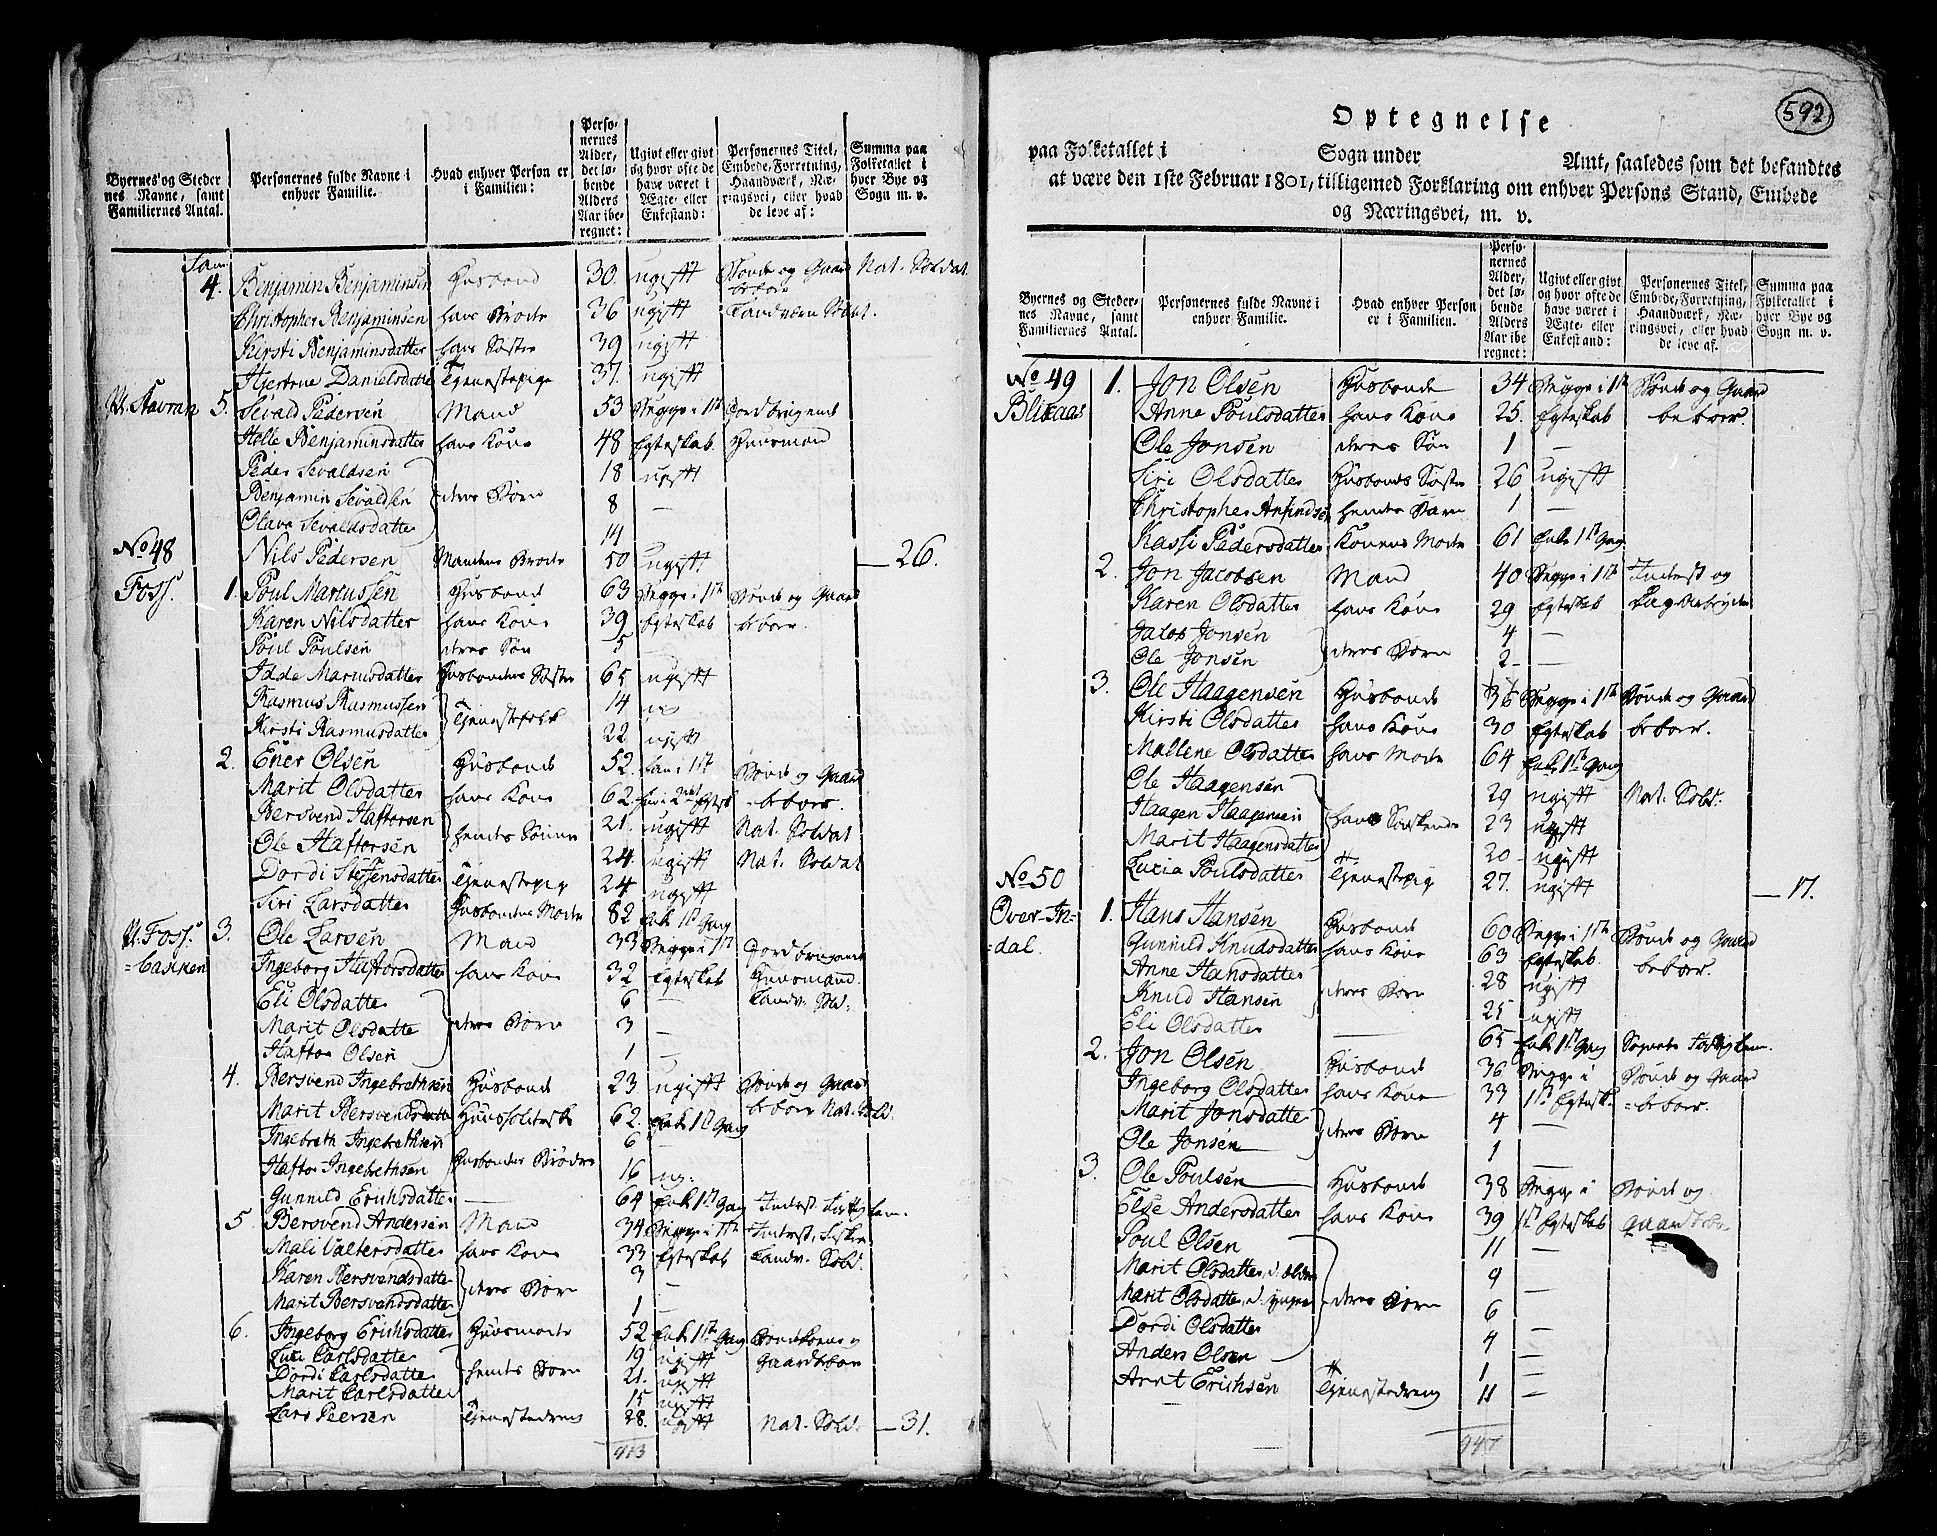 Byernes og Steder
nes Navne, samt
Familiernes Antal.
Personernes fulde Navne i
enhver Familie.
Hvad enhver Person er
i Familien:
Perso-
nernes
Alder,
det lø-
bende
Alders
Aar ibe-
regnet:
Ugivt eller givt
og hvor ofte de
have været i
Ægte- eller
Enkestand:
Personernes Titel,
Embede, Forretning,
Haandværk, Næ-
ringsvei, eller hvad
de leve af:
Summa paa
Folketallet i
hver Bye og
Sogn m. v.
Fam
4. Benjamin Benjaminsen Husbond 30 ugift Bonde og Gaard Nat. Soldat
beboer
Christopher Benjaminsen hans Broder 36 ugift Landværn Soldat.
Kirsti Benjaminsdatter hans Søster 39 ugift
Hjertrue Danielsdatter Tjenestepige 37. ugift
5. Sevald Pedersen Mand 53 Begge i 1st Jordbrugende
Benjaminsdatter hans Kone 48 Egteskab Huusmand
Peder Sevaldsen 18 ugift
Benjamin Sevaldsen deres Børn 8 —
Olava Sevaldsdatter 14
No 48 Nils Pedersen Mandens Broder 50 ugift — 26.
Foss. 1. Poul Marcussen Husbond 63 Begge i 1ste Bonde og Gaard
Karen Nilsdatter hans Kone 39 Egteskab beboer.
Poul Poulsen deres Søn 5
Husbondens Søster 65 ugift
Rasmus Rasmussen 14
Tjenestefolk
Kirsti Rasmusdatter 22 ugift
2. Ener Olsen Husbond 52. han i 1st Bonde og Gaard
Marit Olsdatter hans Kone 62. beboer.
Bersvend Haftorsen 21. ugift Nat. Soldat
hendes Sønner
Ole Haftorsen 24. ugift Nat. Soldat
Dordi Steffensdatter Tjenestepige 24 ugift
Siri Larsdatter Husbondens Moder 82 Enke 1st Gang
3. Ole Larsen Mand 33 Begge i 1st Jordbrugende
Ingeborg Haftorsdatter hans Kone 32 Egteskab Huusmand.
Eli Olsdatter 6 — Landv. Sold.
Marit Olsdatter deres Børn 3 —
Haftor Olsen 1 —
4. Bersvend Ingebrethsen Husbond 23 ugift Bonde og Gaard
beboer Nat. Sold.
Marit Bersvendsdatter 62. Enke 1st Gang
Ingebreth Ingebrethsen 6 —
Husbondens Brødre
Haftor Ingebrethsen 16 ug.
Gunnild Erichsdatter — 64 Enke 1st Gang
5. Bersvend Andersen Mand 34 Begge i 1ste Inderst, Fisker,
Mali Valtersdatter hans Kone 33 Egteskab Landv. Sold.
Karen Bersvendsdatter 3 —
deres Børn
Marit Bersvendsdatter 1 —
6. Ingeborg Erichsdatter Huusmoder 52 Enke 1ste Gang
Carlsdatter 19 ugift
Dordi Carlsdatter hendes Børn 21. ugift
Marit Carlsdatter 15 ugift
Lars Peersen Tjenestedreng 28. ugift Nat. Sold. — 31.
913
592
Optegnelse
paa Folketallet i Sogn under Amt, saaledes som det befandtes
at være den 1ste Februar 1801, tilligemed Forklaring om enhver Persons Stand, Embede
og Næringsvei, m. v.
Byernes og Steder-
nes Navne, samt
Familiernes Antal.
Personernes fulde Navne i
enhver Familie.
Hvad enhver Person
er i Familien.
Perso-
nernes
Alder,
det lø-
bende
Alders
Aar ibe-
regnet:
Ugivt eller givt
og hvor ofte de
have været i
Ægte- eller
Enkestand:
Personernes Titel,
Embede, Forretning,
Haandværk, Næ-
ringsvei, eller hvad
de leve af.
Summa paa
Folketallet i
hver Bye og
Sogn m. v.
No 49 1. Jon Olsen Husbonde 34 Begge i 1st Bonde og Gaard
Anne Poulsdatter hans Kone 25. Egteskab beboer.
Ole Jonsen deres Søn 1 —
Siri Olsdatter Husbonds Søster 26 ugift
Christopher hendes Barn 1 —
Pedersdatter Konens Moder 61 Enke 1st Gang
2. Jon Jacobsen Mand 40 Begge i 1ste Inderst og
Karen Olsdatter hans Kone 29 Egteskab
Jacob Jonsen 4 —
deres Børn
Ole Jonsen 2 —
3. Ole Haagensen Husbond 36 Begge i 1ste Bonde og Gaard
Kirsti Olsdatter hans Kone 30 Egteskab beboer.
Mallene Olsdatter hans Moder 64 Enke 1st Gang
Ole Haagensen 29 ugift Nat. Sold.
Haagen Haagensen hans Søskende 23 ugift
Marit Haagensdatter 20 ugift
Lucia Poulsdatter Tjenestepig 27. ugift — 17.
No 50
Over-In= 1. Hans Hansen Husbond 60 Begge i 1ste Bonde og Gaard
=dal. Gunnild Knudsdatter hans Kone 63 Egteskab. beboer.
Anne Hansdatter 28 ugift
deres Børn
Knud Hansen 25 ugift
Eli Olsdatter — 65 Enke 1st Gang
2. Jon Olsen Husbond 36 Begge i Bonde og Gaard
Ingeborg Olsdatter hans Kone 33 1st Egtesk. =beboer.
Marit Jonsdatter 4 —
deres Børn
Ole Jonsen 1 —
3. Ole Poulsen Husbond 38 Begge i Bonde og
Else Andersdatter hans Kone 39 1st Egteskab
Poul Olsen 11 —
Marit Olsdatter, d. ældre 9
Marit Olsdatter, d. yngre deres Børn 6
Dordi Olsdatter 4 —
Anders Olsen 1 —
Arnt Erichsen Tjenestedreng 11 —
947